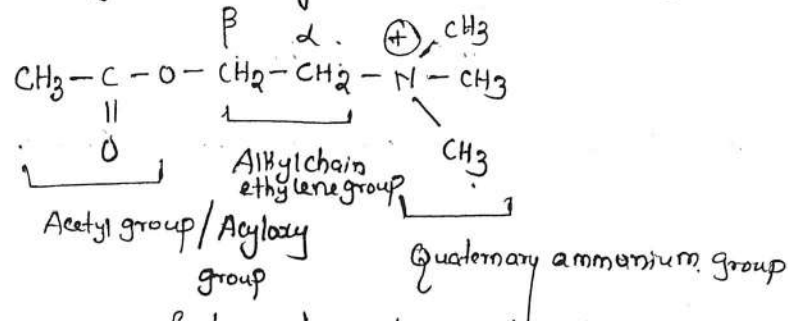 β α. ⊕ CH3
CH3-C-O-CH2-CH2-N-CH3
O
CH3
Alkylchain
ethylenegroup
Acetyl group/Acyloxy
group
Quaternary ammonium group